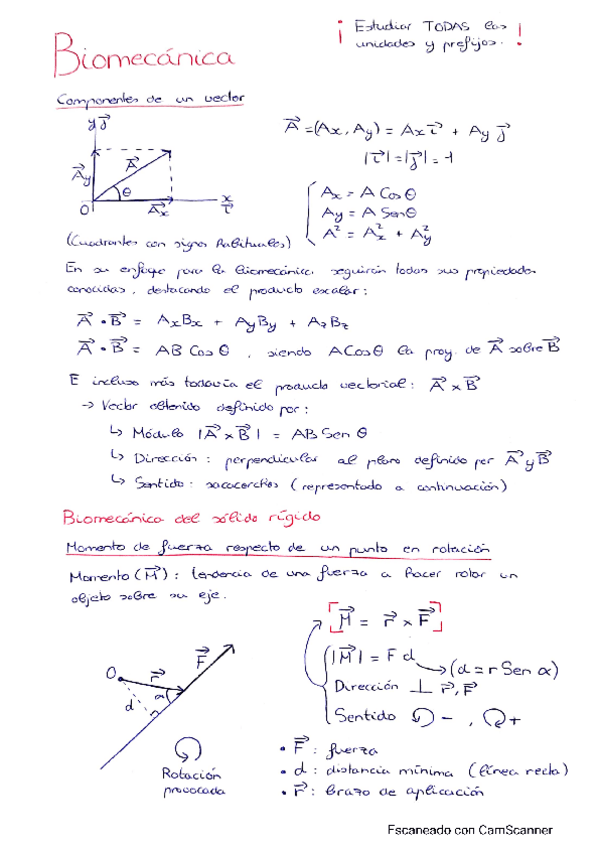 ¡ Estudiar TODAS las
unidades y prefijos. !
Biomecánica
Componentes de un vector
y j⃗
A⃗
A⃗y
θ
0
A⃗x
x
i⃗
A⃗ = (Ax, Ay) = Ax i⃗ + Ay j⃗
|i⃗| = |j⃗| = 1
Ax = A Cos θ
Ay = A Sen θ
A² = Ax² + Ay²
(Cuadrantes con signos habituales)
En su enfoque para la biomecánica, seguirán todas sus propiedades
conocidas, destacando el producto escalar:
A⃗ • B⃗ = AxBx + AyBy + AzBz
A⃗ • B⃗ = AB Cos θ , siendo A Cos θ la proy. de A⃗ sobre B⃗
E incluso más todavía el producto vectorial: A⃗ x B⃗
→ Vector obtenido definido por:
↳ Módulo |A⃗ x B⃗| = AB Sen θ
↳ Dirección: perpendicular al plano definido por A⃗ y B⃗
↳ Sentido: sacacorchos (representado a continuación)
Biomecánica del sólido rígido
Momento de fuerza respecto de un punto en rotación
Momento (M⃗): tendencia de una fuerza a hacer rotar un
objeto sobre su eje.
O
r⃗
F⃗
α
d
Rotación
provocada
[M⃗ = r⃗ x F⃗]
|M⃗| = F d → (d = r Sen α)
Dirección ⊥ r⃗, F⃗
Sentido ↺ - , ↻ +
• F⃗: fuerza
• d: distancia mínima (línea recta)
• r⃗: brazo de aplicación
Escaneado con CamScanner